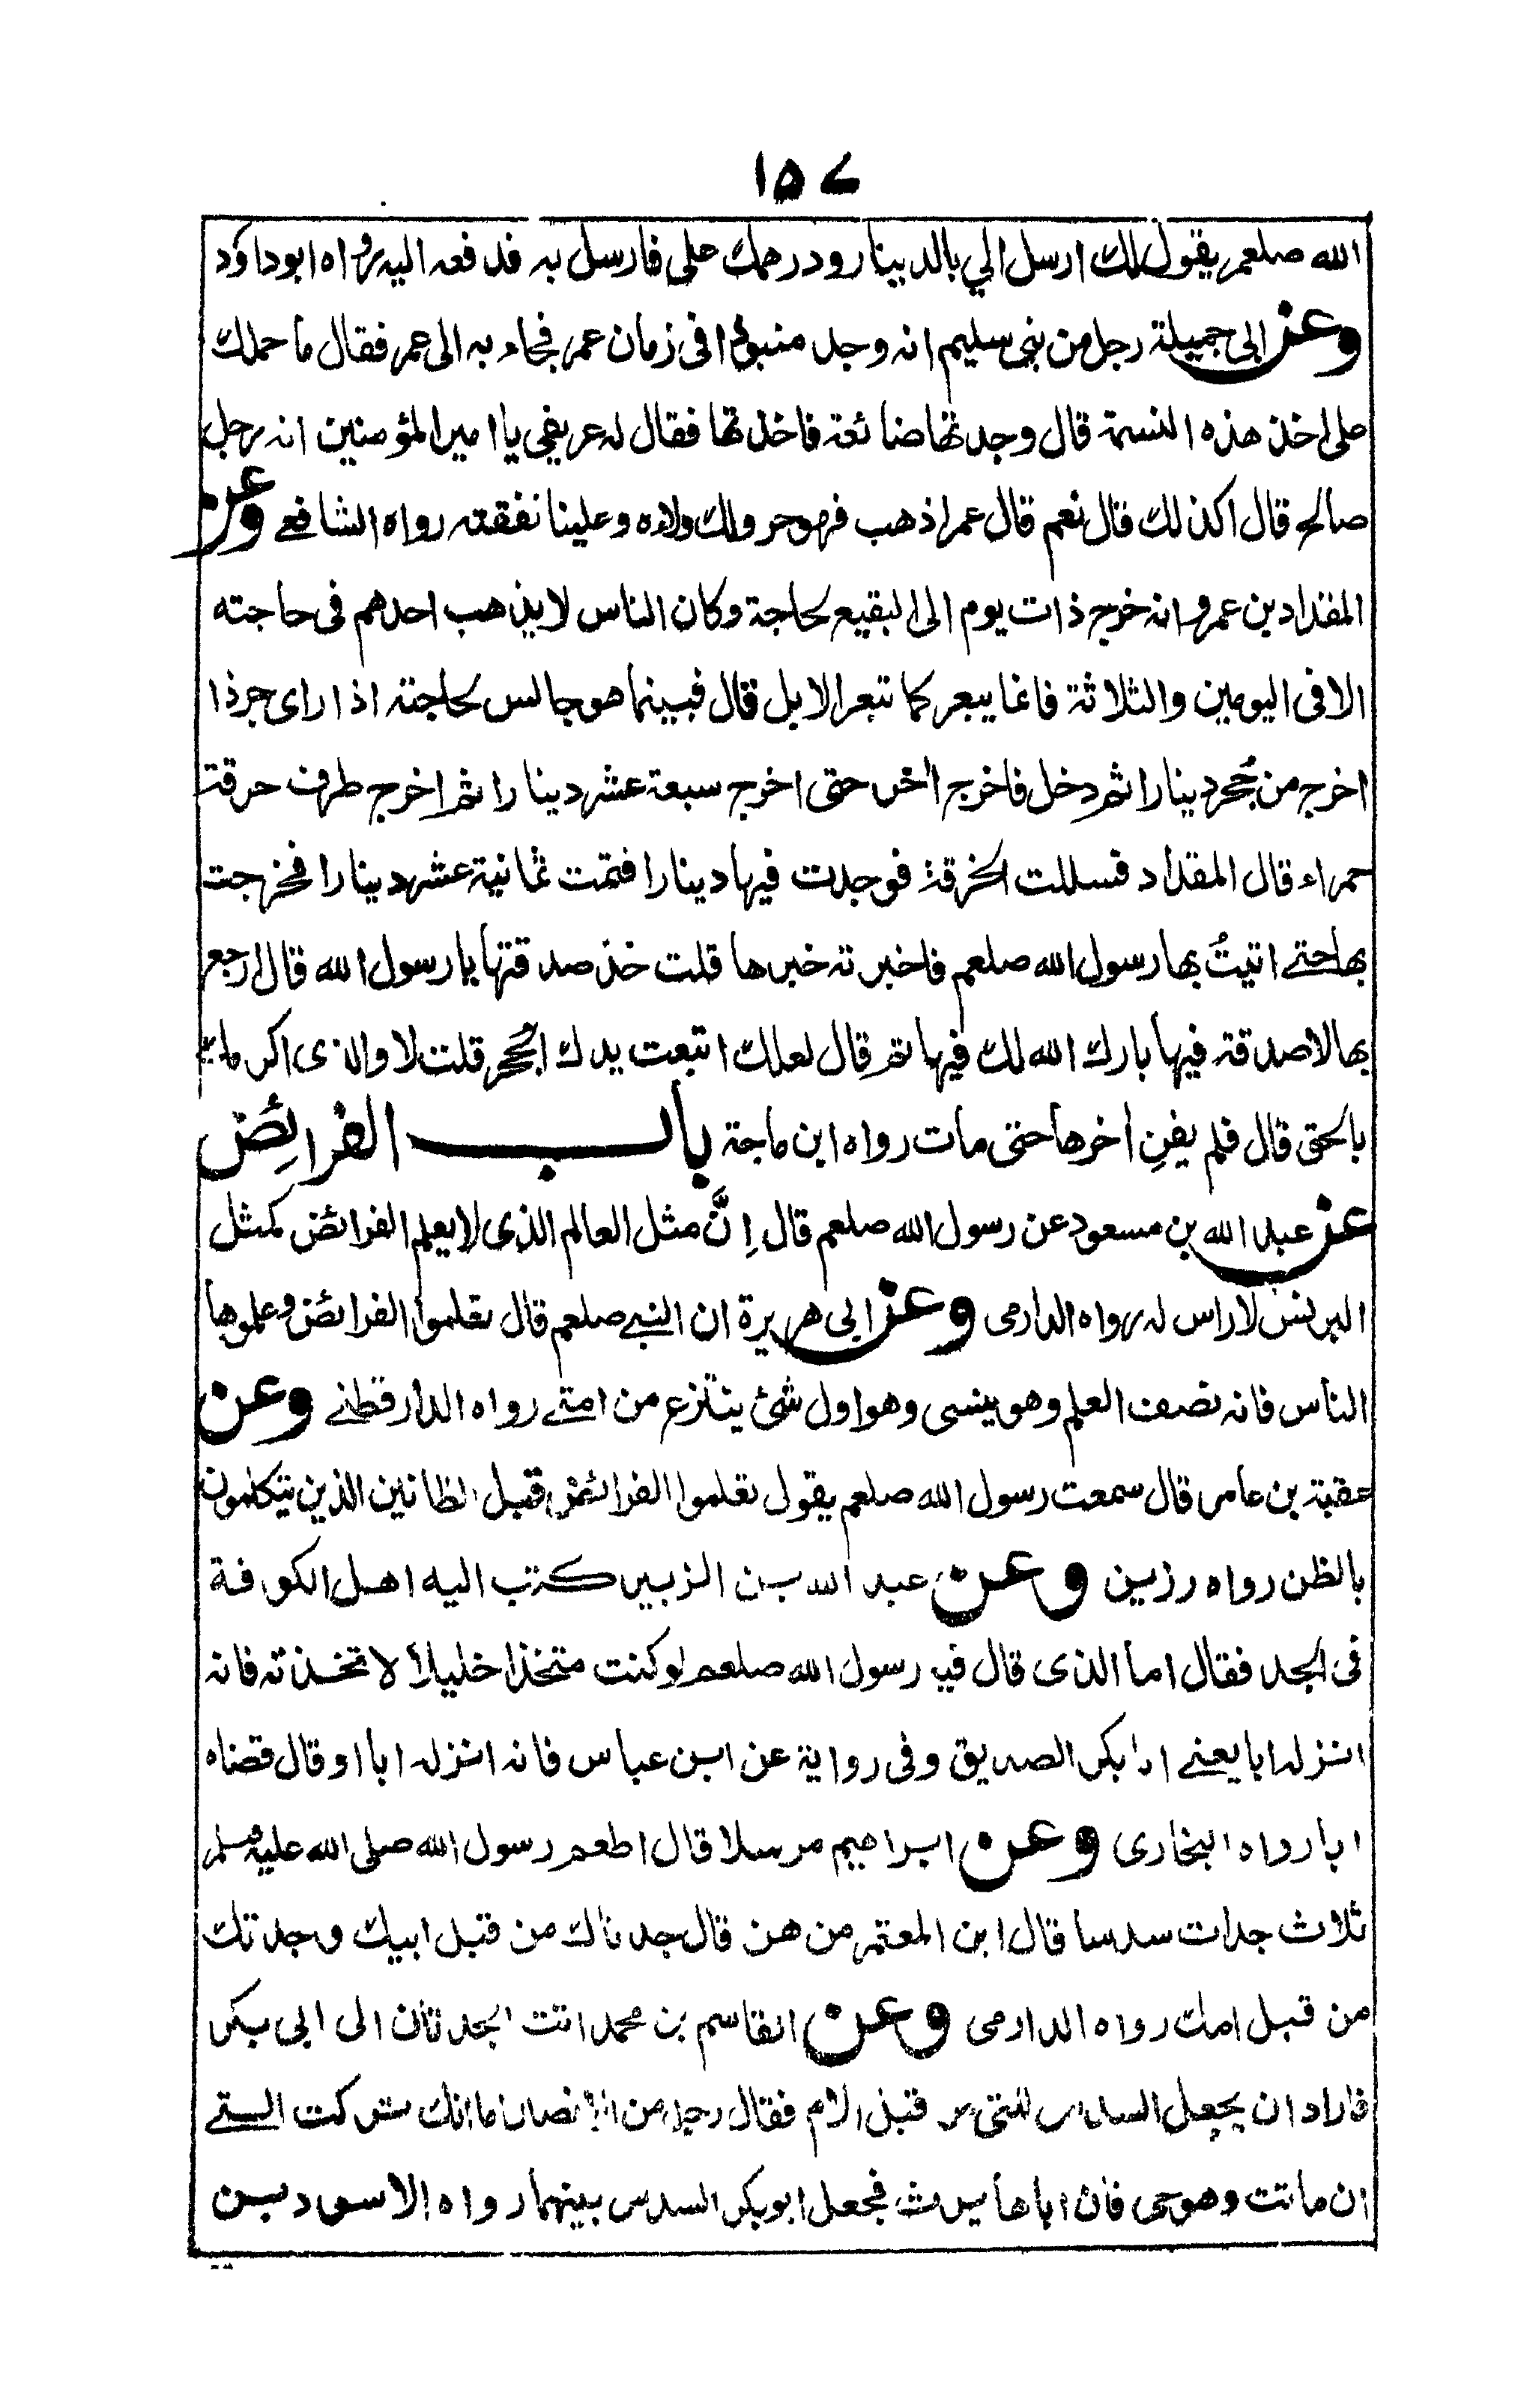 ١٥٧
الله صلعم يقول لك ارسل الي بالدينار ودرهمك على فارسل به فدفعه اليه رواه ابوداؤد
وعن ابى جميلة رجل من بنى سليم انه وجد منبوذا فى زمان عمر فجاء به الى عمر فقال ما حملك
على اخذ هذه النسمة قال وجدتها ضائعة فاخذتها فقال له عريفى يا امير المؤمنين انه رجل
صالح قال اكذلك قال نعم قال عمر اذهب فهو حر ولك ولاءه وعلينا نفقته رواه الشافعے وعن
المقداد بن عمرو انه خرج ذات يوم الى البقيع لحاجة وكان الناس لا يذهب احدهم فى حاجته
الا فى اليومين والثلاثة فانما يبعر كما تبعر الابل قال فبينما هو جالس لحاجته اذا راى جرذا
اخرج من جُحر دينارا ثم دخل فاخرج اٰخر حتى اخرج سبعة عشر دينارا ثم اخرج طرف حرقة
حمراء قال المقداد فسللت الخرقة فوجدت فيها دينارا فتمت ثمانية عشر دينارا فخرجت
بها حتے اتيتُ بها رسول الله صلعم فاخبرته خبرها قلت خذ صدقتها يا رسول الله قال ارجع
بها لا صدقة فيها بارك الله لك فيها ثم قال لعلك اتبعت يدك الجُحر قلت لا والذى اكرمك
بالحق قال فلم يفنِ اٰخرها حتى مات رواه ابن ماجة باب الفرائِض
عن عبد الله بن مسعود عن رسول الله صلعم قال اِنَّ مثل العالم الذى لا يعلم الفرائض كمثل
البرنس لا راس له رواه الدارمى وعن ابى هريرة ان النبے صلعم قال تعلموا الفرائض وعلموها
الناس فانه نصف العلم وهو ينسى وهو اول شئ ينتزع من امتے رواه الدارقطنے وعن
عقبة بن عامر قال سمعت رسول الله صلعم يقول تعلموا الفرائض قبل الظانين الذين يتكلمون
بالظن رواه رزين وعن عبد الله بن الزبير كتب اليه اهل الكوفة
فى الجد فقال اما الذى قال فيه رسول الله صلعم لو كنت متخذا خليلا لاتخذته فانه
انزله ابا يعنے ابا بكر الصديق وفى رواية عن ابن عباس فانه انزله ابا او قال قضاه
ابا رواه البخارى وعن ابراهيم مرسلا قال اطعم رسول الله صلى الله عليه وسلم
ثلاث جدات سدسا قال ابن المعتمر من هن قال جدتاك من قبل ابيك وجدتك
من قبل امك رواه الدارمى وعن القاسم بن محمد اتت الجدتان الى ابى بكر
فاراد ان يجعل السدس للتى من قبل الام فقال رجل من الانصار اما انك تتركت التے
ان ماتت وهو حى فان اباها يرث فجعل ابو بكر السدس بينهما رواه الاسود بن